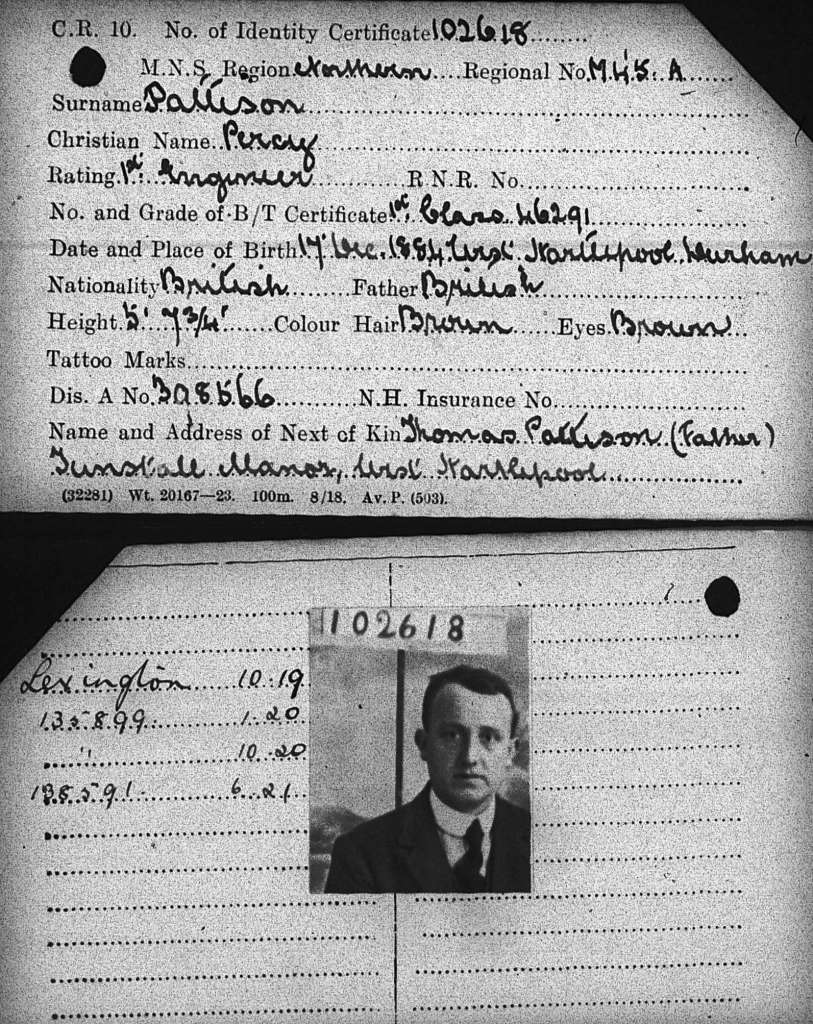 C.R. 10. No. of Identity Certificate 102618
M.N.S. Region Northern Regional No. M.45. A
Surname Pattison
Christian Name Percy
Rating 1st Engineer R.N.R. No.
No. and Grade of B/T Certificate 1st Class 46291
Date and Place of Birth 17 Dec. 1884 West Hartlepool Durham
Nationality British Father British
Height 5' 7 3/4" Colour Hair Brown Eyes Brown
Tattoo Marks
Dis. A No. 398566 N.H. Insurance No.
Name and Address of Next of Kin Thomas Pattison (Father)
Tunstall Manor, West Hartlepool
(32281) Wt. 20167—23. 100m. 8/18. Av. P. (503).
102618
Lexington 10.19
135899 1.20
" 10.20
138591 6.21